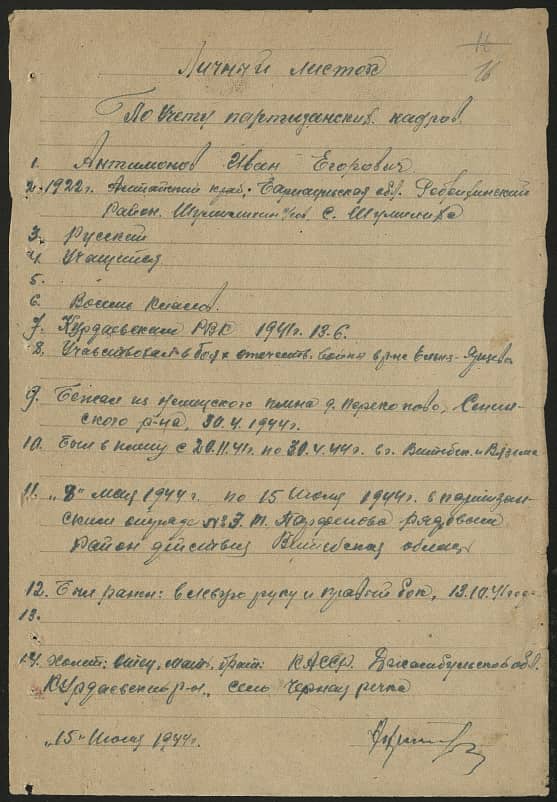 16
Личный листок
По учету партизанских кадров
1. Антимонов Иван Егорович
2. 1922 г. Алтайский край, Барнаульская обл.
район. с. Шумилиха
3. Русский
4. Учащийся
5.
6. Восемь классов.
7. Курдаевским РВК 1941 г. 13.6.
8. Участвовал в боях отечеств. войны в р-не
9. Бежал из немецкого плена д. Перекопово,
ского р-на, 30.4.1944 г.
10. Был в плену с 20.11.41 г. по 30.4.44 г. в г. Витебск и Вязьма
11. "8" мая 1944 г. по 15 июля 1944 г. в партизан-
ским отряде № 3. т. Парфенова рядовым
район действия Витебская область
12. Был ранен: в левую руку и правый бок, 13.10.41 года
13.
14. отец, мать, брат: КАССР. Джамбульская обл.
Курдаевский р-н., село Черная речка
"15" июля 1944 г.